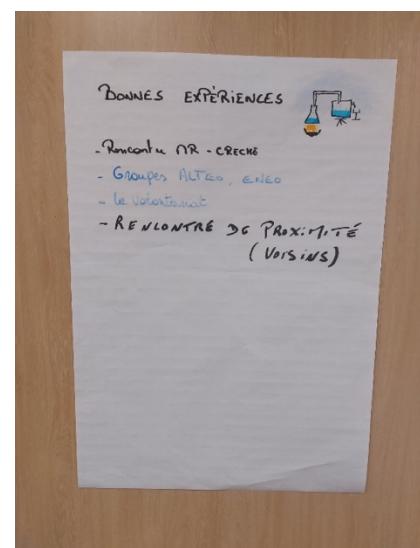 BONNES EXPÈRIENCES
- Rencontre MR - CRECHE
- Groupes ALTEO, ENEO
- le Volontariat
- RENCONTRE DE PROXIMITÉ
(VOISINS)